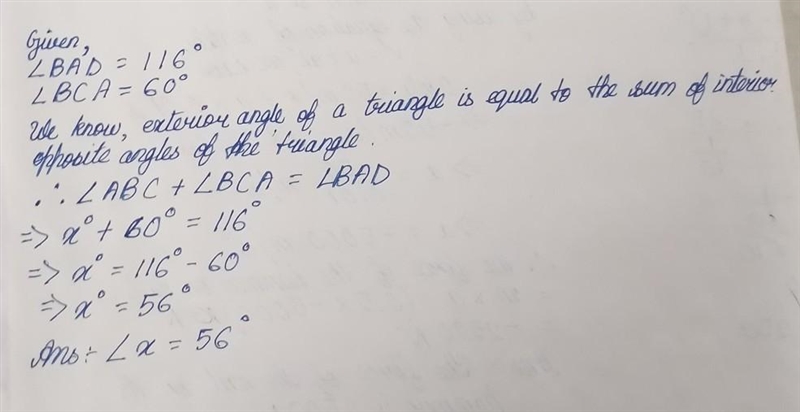 Given,
∠BAD = 116°
∠BCA = 60°
We know, exterior angle of a triangle is equal to the sum of interior
opposite angles of the triangle.
∴ ∠ABC + ∠BCA = ∠BAD
=> x° + 60° = 116°
=> x° = 116° - 60°
=> x° = 56°
Ans:- ∠x = 56°